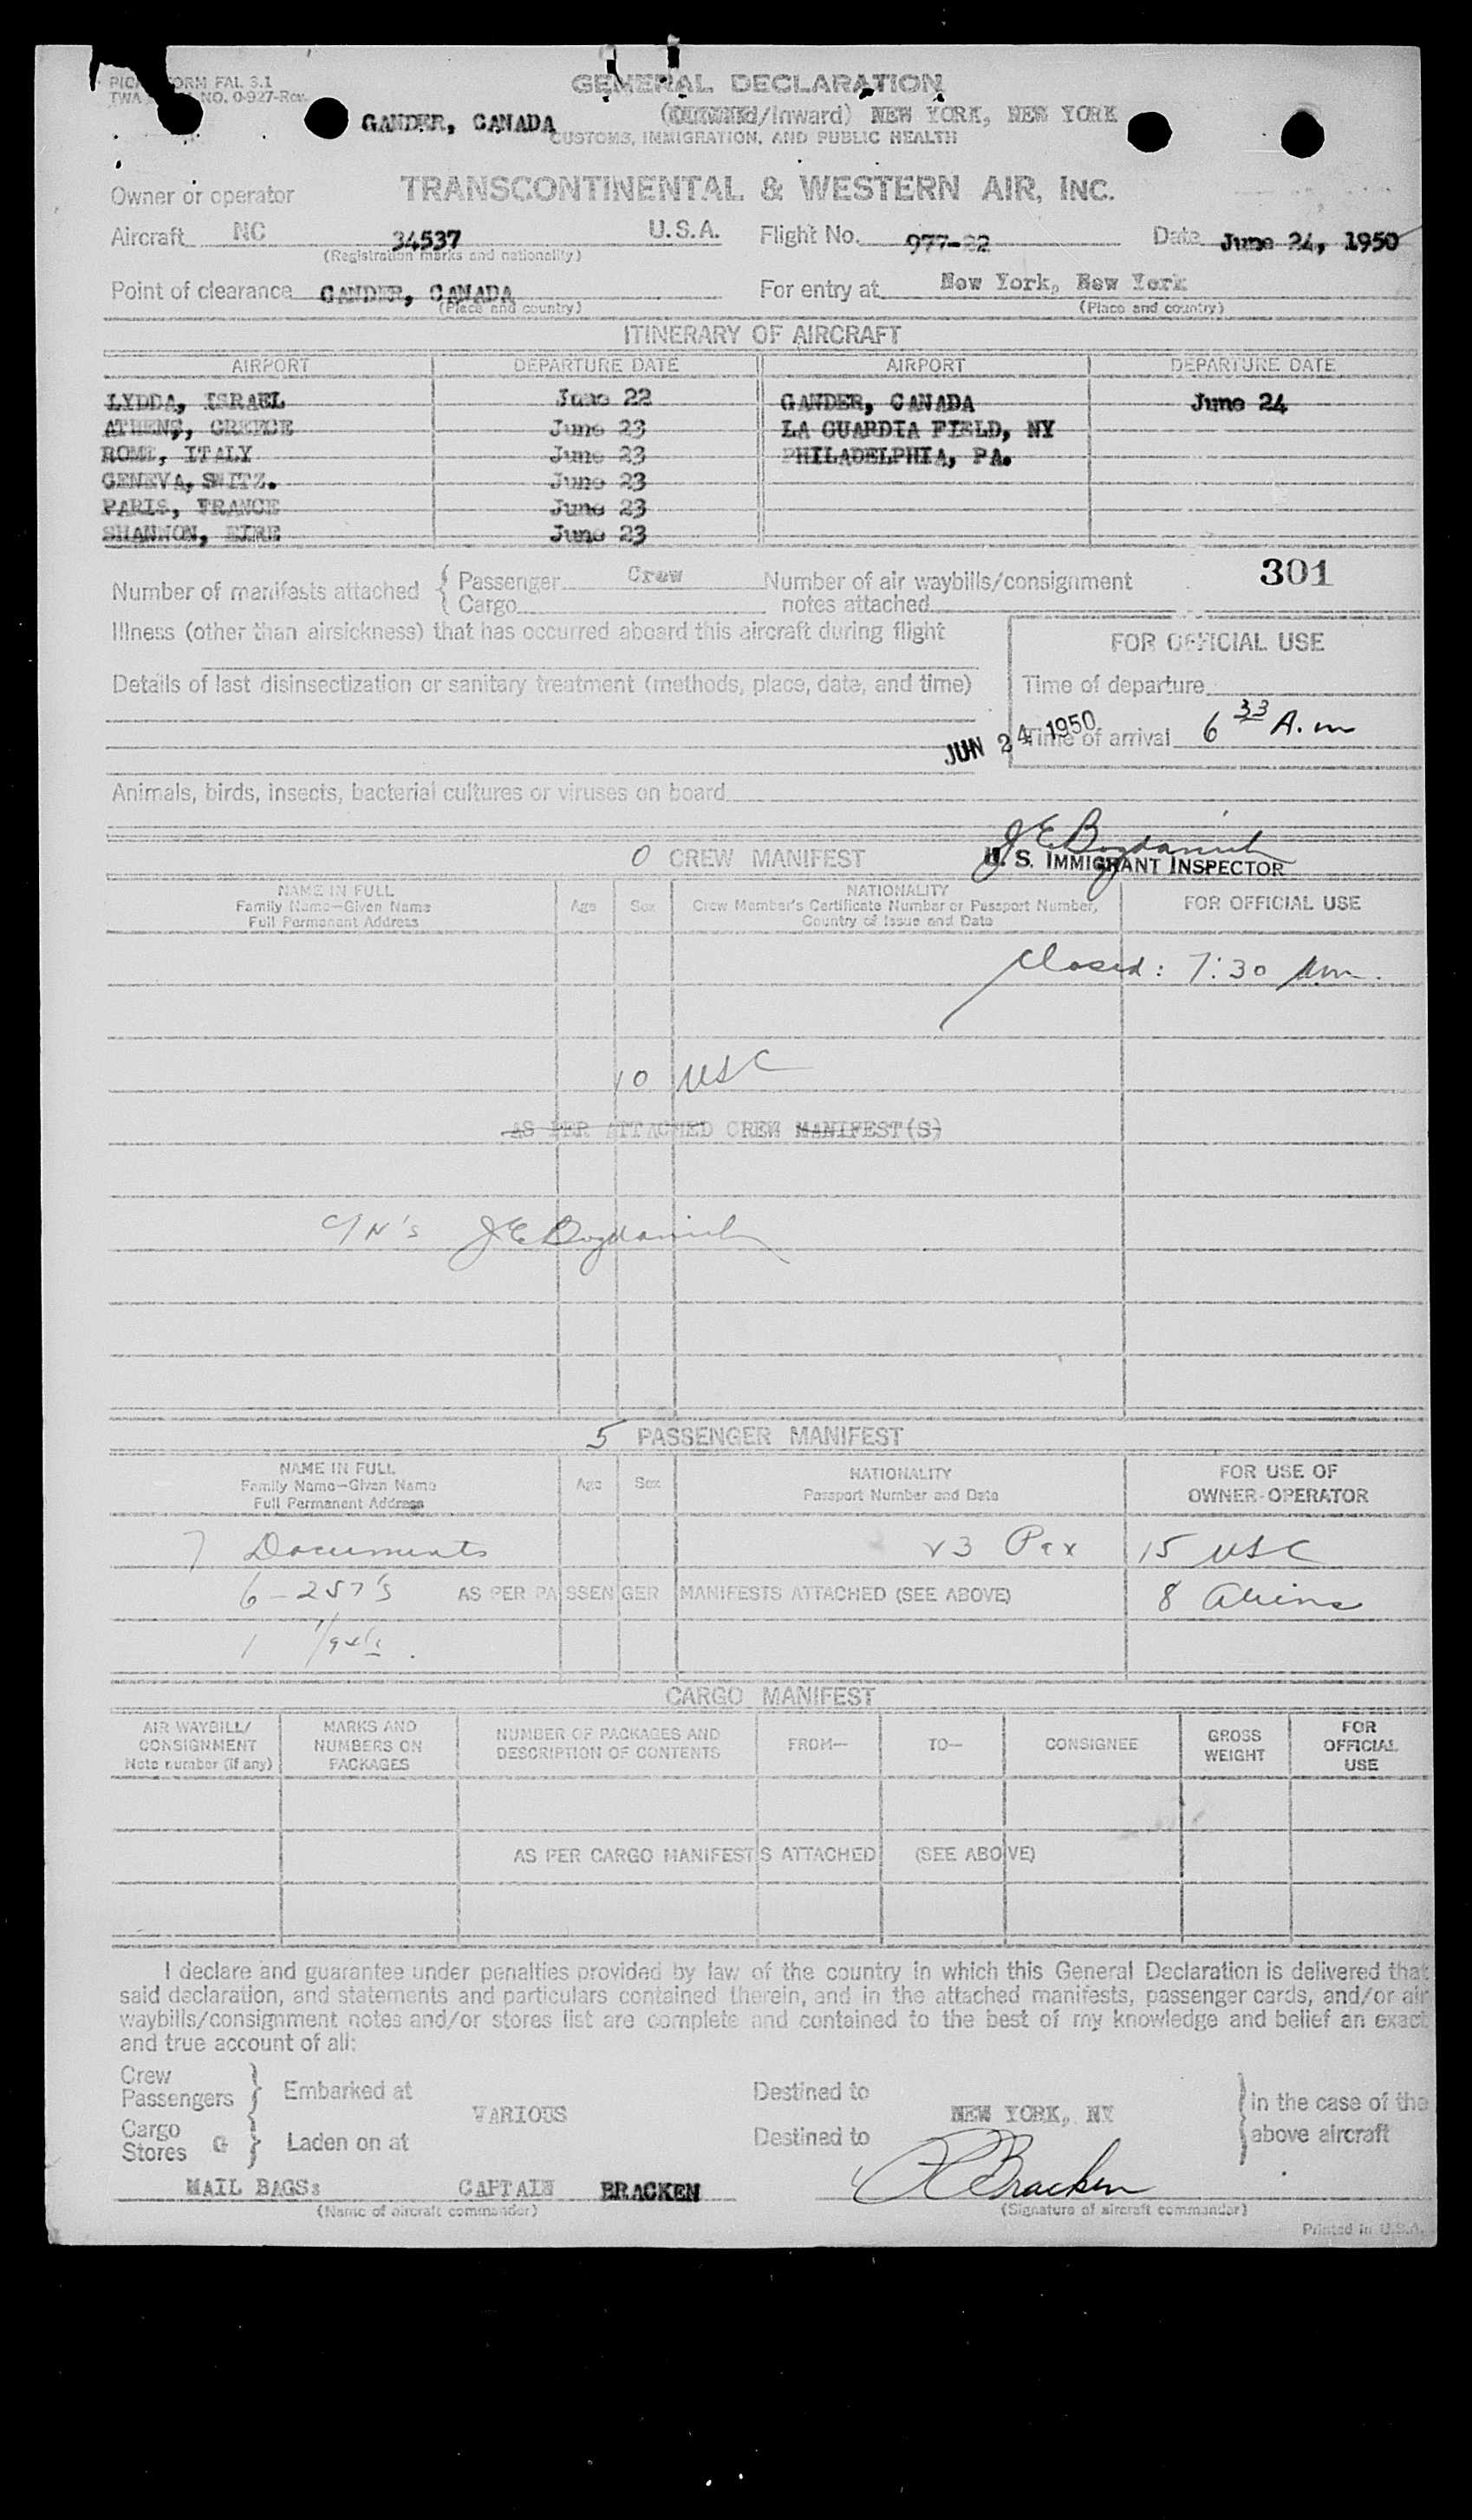 FORM FAL 3.1
TWA NO. 0-927-Rev.
GENERAL DECLARATION
GANDER, CANADA (Outward/Inward) NEW YORK, NEW YORK
CUSTOMS, IMMIGRATION, AND PUBLIC HEALTH
Owner or operator TRANSCONTINENTAL & WESTERN AIR, INC.
Aircraft NC 34537 U.S.A. Flight No. 977-22 Date June 24, 1950
(Registration marks and nationality)
Point of clearance GANDER, CANADA For entry at New York, New York
(Place and country) (Place and country)
ITINERARY OF AIRCRAFT
AIRPORT DEPARTURE DATE AIRPORT DEPARTURE DATE
LYDDA, ISRAEL June 22 GANDER, CANADA June 24
ATHENS, GREECE June 23 LA GUARDIA FIELD, NY
ROME, ITALY June 23 PHILADELPHIA, PA.
GENEVA, SWITZ. June 23
PARIS, FRANCE June 23
SHANNON, EIRE June 23
301
Number of manifests attached { Passenger Crew Number of air waybills/consignment
Cargo notes attached
Illness (other than airsickness) that has occurred aboard this aircraft during flight
FOR OFFICIAL USE
Details of last disinsectization or sanitary treatment (methods, place, date, and time)
Time of departure
JUN 24 1950
Time of arrival 6 33 A.m
Animals, birds, insects, bacterial cultures or viruses on board
J E Bogdanich
U. S. IMMIGRANT INSPECTOR
0 CREW MANIFEST
NAME IN FULL
Family Name—Given Name
Full Permanent Address
Age Sex
NATIONALITY
Crew Member's Certificate Number or Passport Number,
Country of Issue and Date
FOR OFFICIAL USE
Closed: 7:30 Am.
10 USC
AS PER ATTACHED CREW MANIFEST(S)
C/N's J E Bogdanich
5 PASSENGER MANIFEST
NAME IN FULL
Family Name—Given Name
Full Permanent Address
Age Sex
NATIONALITY
Passport Number and Date
FOR USE OF
OWNER-OPERATOR
7 Documents 23 Pax 15 USC
6 - 257's AS PER PASSENGER MANIFESTS ATTACHED (SEE ABOVE) 8 Aliens
1
CARGO MANIFEST
AIR WAYBILL/
CONSIGNMENT
Note number (if any)
MARKS AND
NUMBERS ON
PACKAGES
NUMBER OF PACKAGES AND
DESCRIPTION OF CONTENTS
FROM—
TO—
CONSIGNEE
GROSS
WEIGHT
FOR
OFFICIAL
USE
AS PER CARGO MANIFESTS ATTACHED (SEE ABOVE)
I declare and guarantee under penalties provided by law of the country in which this General Declaration is delivered that
said declaration, and statements and particulars contained therein, and in the attached manifests, passenger cards, and/or air
waybills/consignment notes and/or stores list are complete and contained to the best of my knowledge and belief an exact
and true account of all:
Crew
Passengers } Embarked at Destined to } in the case of the
VARIOUS NEW YORK, NY
Cargo
Stores G } Laden on at Destined to above aircraft
MAIL BAGS: CAPTAIN BRACKEN Bracken
(Name of aircraft commander) (Signature of aircraft commander)
Printed in U.S.A.